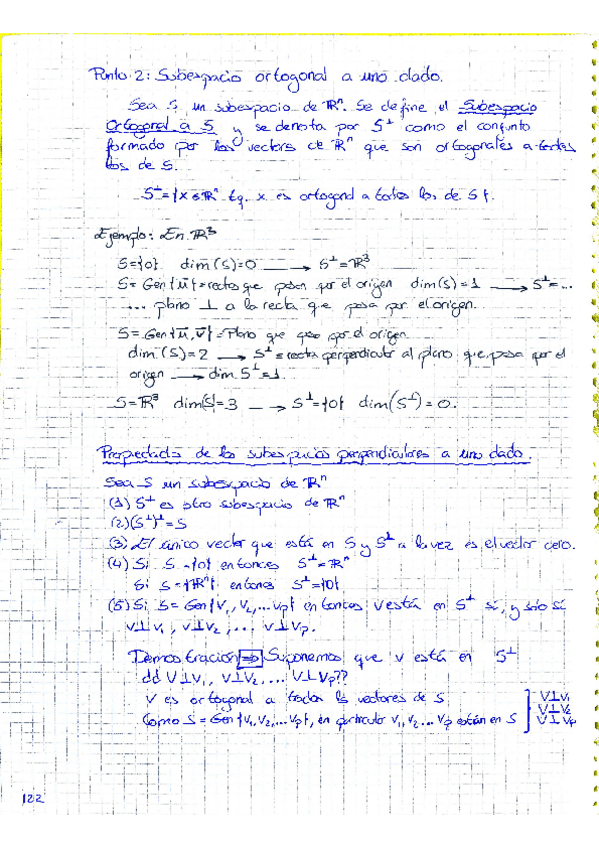 Punto 2: Subespacio ortogonal a uno dado.
Sea S, un subespacio de ℝⁿ. Se define el Subespacio
Ortogonal a S y se denota por S^⊥ como el conjunto
formado por los vectores de ℝⁿ que son ortogonales a todos
los de S.
S^⊥={x∈ℝⁿ tq. x es ortogonal a todos los de S}.
Ejemplo: En ℝ³
S={0} dim(S)=0 → S^⊥=ℝ³
S= Gen{u̅}=recta que pasa por el origen dim(S)=1 → S^⊥=...
... plano ⊥ a la recta que pasa por el origen.
S=Gen{u̅,v̅}=Plano que pasa por el origen
dim(S)=2 → S^⊥=recta perpendicular al plano que pasa por el
origen → dim S^⊥=1.
S=ℝ³ dim(S)=3 → S^⊥={0} dim(S^⊥)=0.
Propiedades de los subespacios perpendiculares a uno dado.
Sea S un subespacio de ℝⁿ
(1) S^⊥ es otro subespacio de ℝⁿ
(2)(S^⊥)^⊥=S
(3) El único vector que está en S y S^⊥ a la vez es el vector cero.
(4) Si S={0} entonces S^⊥=ℝⁿ
Si S={ℝⁿ} entonces S^⊥={0}
(5) Si S=Gen{v₁,v₂,...vp} entonces v está en S^⊥ si, y sólo si
v⊥v₁, v⊥v₂, ... v⊥vp.
Demostración ⇒ Suponemos que v está en S^⊥
dd v⊥v₁, v⊥v₂, ... v⊥vp??
v es ortogonal a todos los vectores de S
Como S=Gen{v₁,v₂,...vp}, en particular v₁,v₂...vp están en S ] v⊥v₁
v⊥v₂
v⊥vp
122